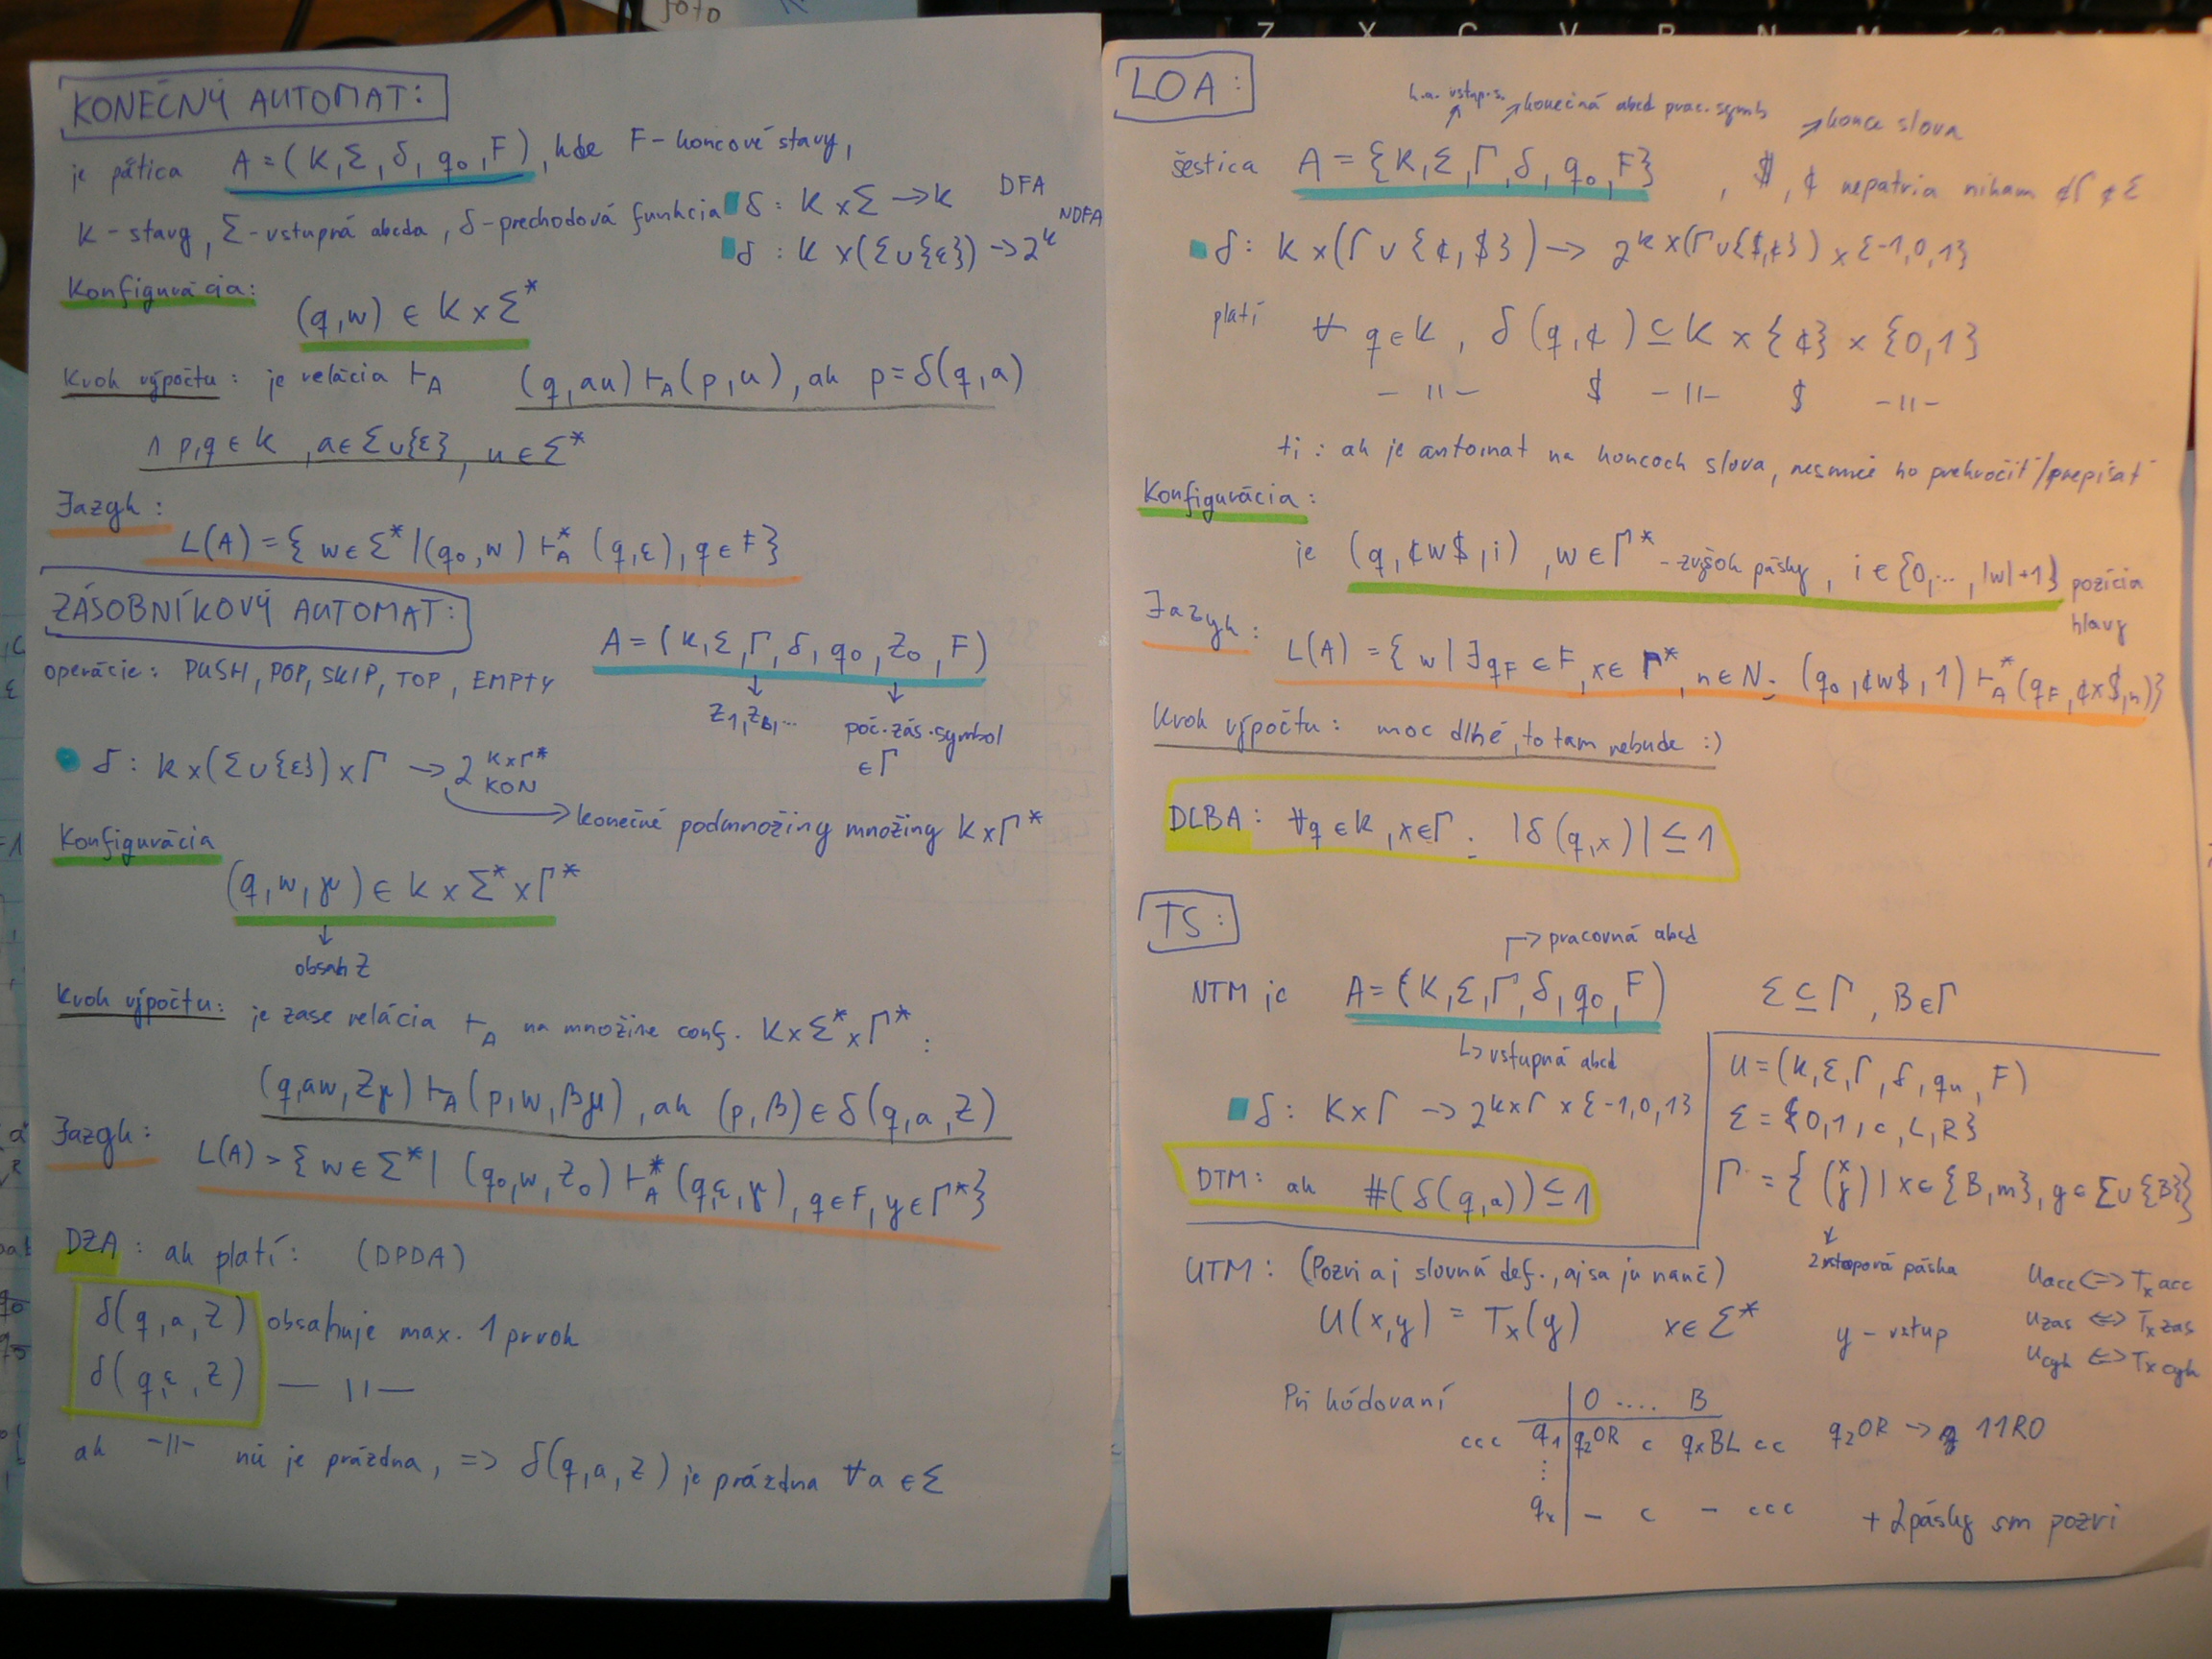 foto
Z X C V B N M
KONEČNÝ AUTOMAT:
je pätica A = (K, Σ, δ, q₀, F), kde F - koncové stavy,
K - stavy, Σ - vstupná abcda, δ - prechodová funkcia δ: K × Σ → K DFA
δ: K × (Σ ∪ {ε}) → 2^K NDFA
Konfigurácia:
(q, w) ∈ K × Σ*
Krok výpočtu: je relácia ⊢_A (q, au) ⊢_A (p, u), ak p = δ(q, a)
∧ p, q ∈ K, a ∈ Σ ∪ {ε}, u ∈ Σ*
Jazyk:
L(A) = { w ∈ Σ* | (q₀, w) ⊢*_A (q, ε), q ∈ F }
ZÁSOBNÍKOVÝ AUTOMAT:
A = (K, Σ, Γ, δ, q₀, Z₀, F)
operácie: PUSH, POP, SKIP, TOP, EMPTY
↓ ↓
Z₁, Z_B, ... poč. zás. symbol
∈ Γ
δ: K × (Σ ∪ {ε}) × Γ → 2^{K×Γ*}_{KON}
→ konečné podmnožiny množiny K × Γ*
Konfigurácia
(q, w, γ) ∈ K × Σ* × Γ*
↓
obsah Z
Krok výpočtu: je zase relácia ⊢_A na množine conf. K × Σ* × Γ* :
(q, aw, Zγ) ⊢_A (p, w, βγ), ak (p, β) ∈ δ(q, a, Z)
Jazyk:
L(A) = { w ∈ Σ* | (q₀, w, Z₀) ⊢*_A (q, ε, γ), q ∈ F, γ ∈ Γ* }
DZA: ak platí: (DPDA)
δ(q, a, Z) obsahuje max. 1 prvok
δ(q, ε, Z) — || —
ak -||- nie je prázdna, => δ(q, a, Z) je prázdna ∀a ∈ Σ
LOA:
k.a. vstup.s. konečná abcd prac. symb → konce slova
šestica A = {K, Σ, Γ, δ, q₀, F} , $, ¢ nepatria nikam ∉Γ ∉Σ
δ: K × (Γ ∪ {¢, $}) → 2^{K × (Γ ∪ {$, ¢}) × {-1, 0, 1}}
platí ∀ q ∈ K, δ(q, ¢) ⊆ K × {¢} × {0, 1}
- || - $ - || - $ - || -
tj: ak je automat na koncoch slova, nesmie ho prekročiť/prepísať
Konfigurácia:
je (q, ¢w$, i), w ∈ Γ* - zvyšok pásky, i ∈ {0, ..., |w|+1} pozícia
hlavy
Jazyk:
L(A) = { w | ∃ q_F ∈ F, x ∈ Γ*, n ∈ N: (q₀, ¢w$, 1) ⊢*_A (q_F, ¢x$, n)}
Krok výpočtu: moc dlhé, to tam nebude :)
DLBA: ∀q ∈ K, x ∈ Γ: |δ(q, x)| ≤ 1
TS:
→ pracovná abcd
NTM je A = (K, Σ, Γ, δ, q₀, F) Σ ⊆ Γ, B ∈ Γ
↳ vstupná abcd
δ: K × Γ → 2^{K × Γ × {-1, 0, 1}}
DTM: ak #(δ(q, a)) ≤ 1
U = (K, Σ, Γ, δ, q_u, F)
Σ = {0, 1, c, L, R}
Γ = { (x y) | x ∈ {B, m}, y ∈ Σ ∪ {B}}
↓
2 stopová páska
UTM: (Pozri aj slovnú def., aj sa ju nauč)
U(x, y) = T_x(y) x ∈ Σ* y - vstup
U acc <=> T_x acc
U zas <=> T_x zas
U cyk <=> T_x cyk
Pri kódovaní | 0 .... B
ccc q₁ | q₂0R c q_xBL cc q₂0R → 11R0
⋮
q_x | - c - ccc
+ 2 pásky sm pozri